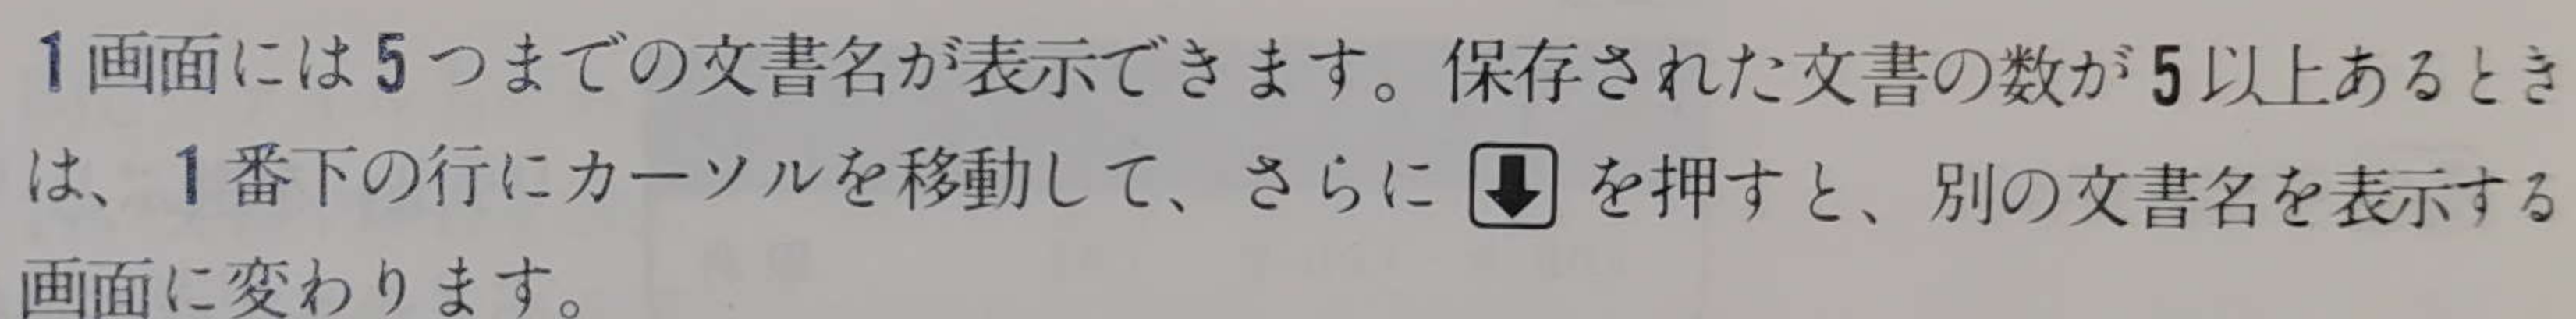 1画面には5つまでの文書名が表示できます。保存された文書の数が5以上あるとき
は、1番下の行にカーソルを移動して、さらに⬇を押すと、別の文書名を表示する
画面に変わります。